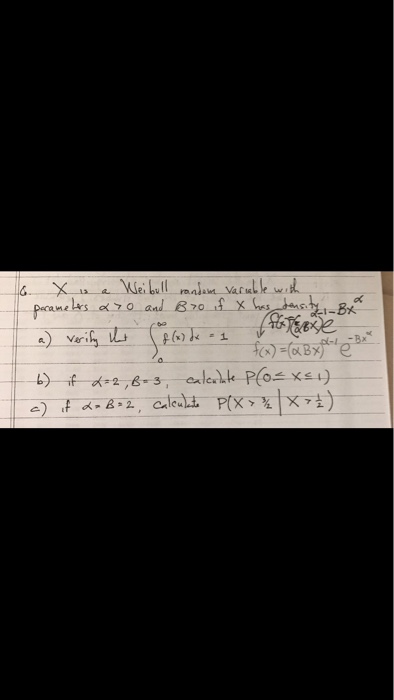 6. X is a Weibull random variable with
parameters α>0 and B>0 if X has density
f(x)=(αBx)^α-1 e^-Bx^α
a) verify that ∫₀^∞ f(x) dx = 1
b) if α=2, B=3, calculate P(0≤X≤1)
c) if α=B=2, calculate P(X > 3/2 | X > 1/2)